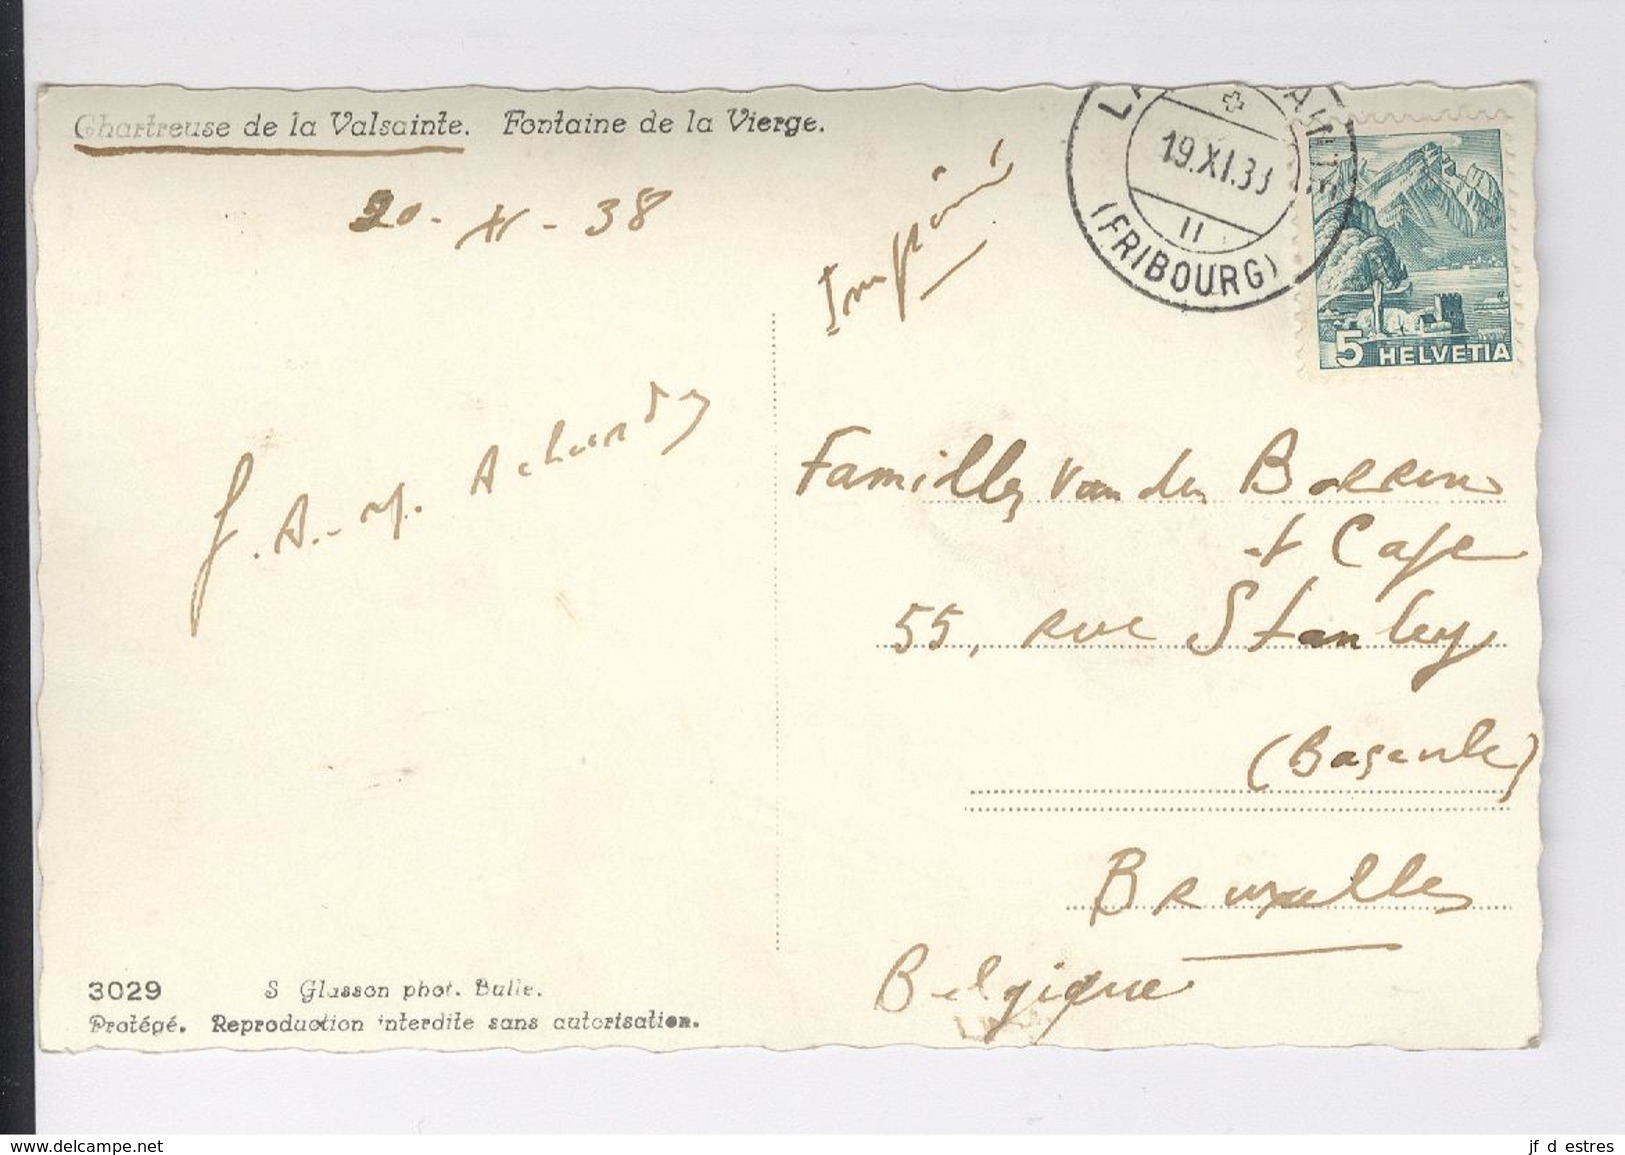 Chartreuse de la Valsainte. Fontaine de la Vierge.
20-XI-38
Imprimé
19.XI.38
II
(FRIBOURG)
5 HELVETIA
f. A.-M.
Famille Van den Borren
et Cafe
55, rue Stanley
(Bascule)
Bruxelles
Belgique
3029 S Glasson phot. Bulle.
Protégé. Reproduction interdite sans autorisation.
www.delcampe.net
jf d estres